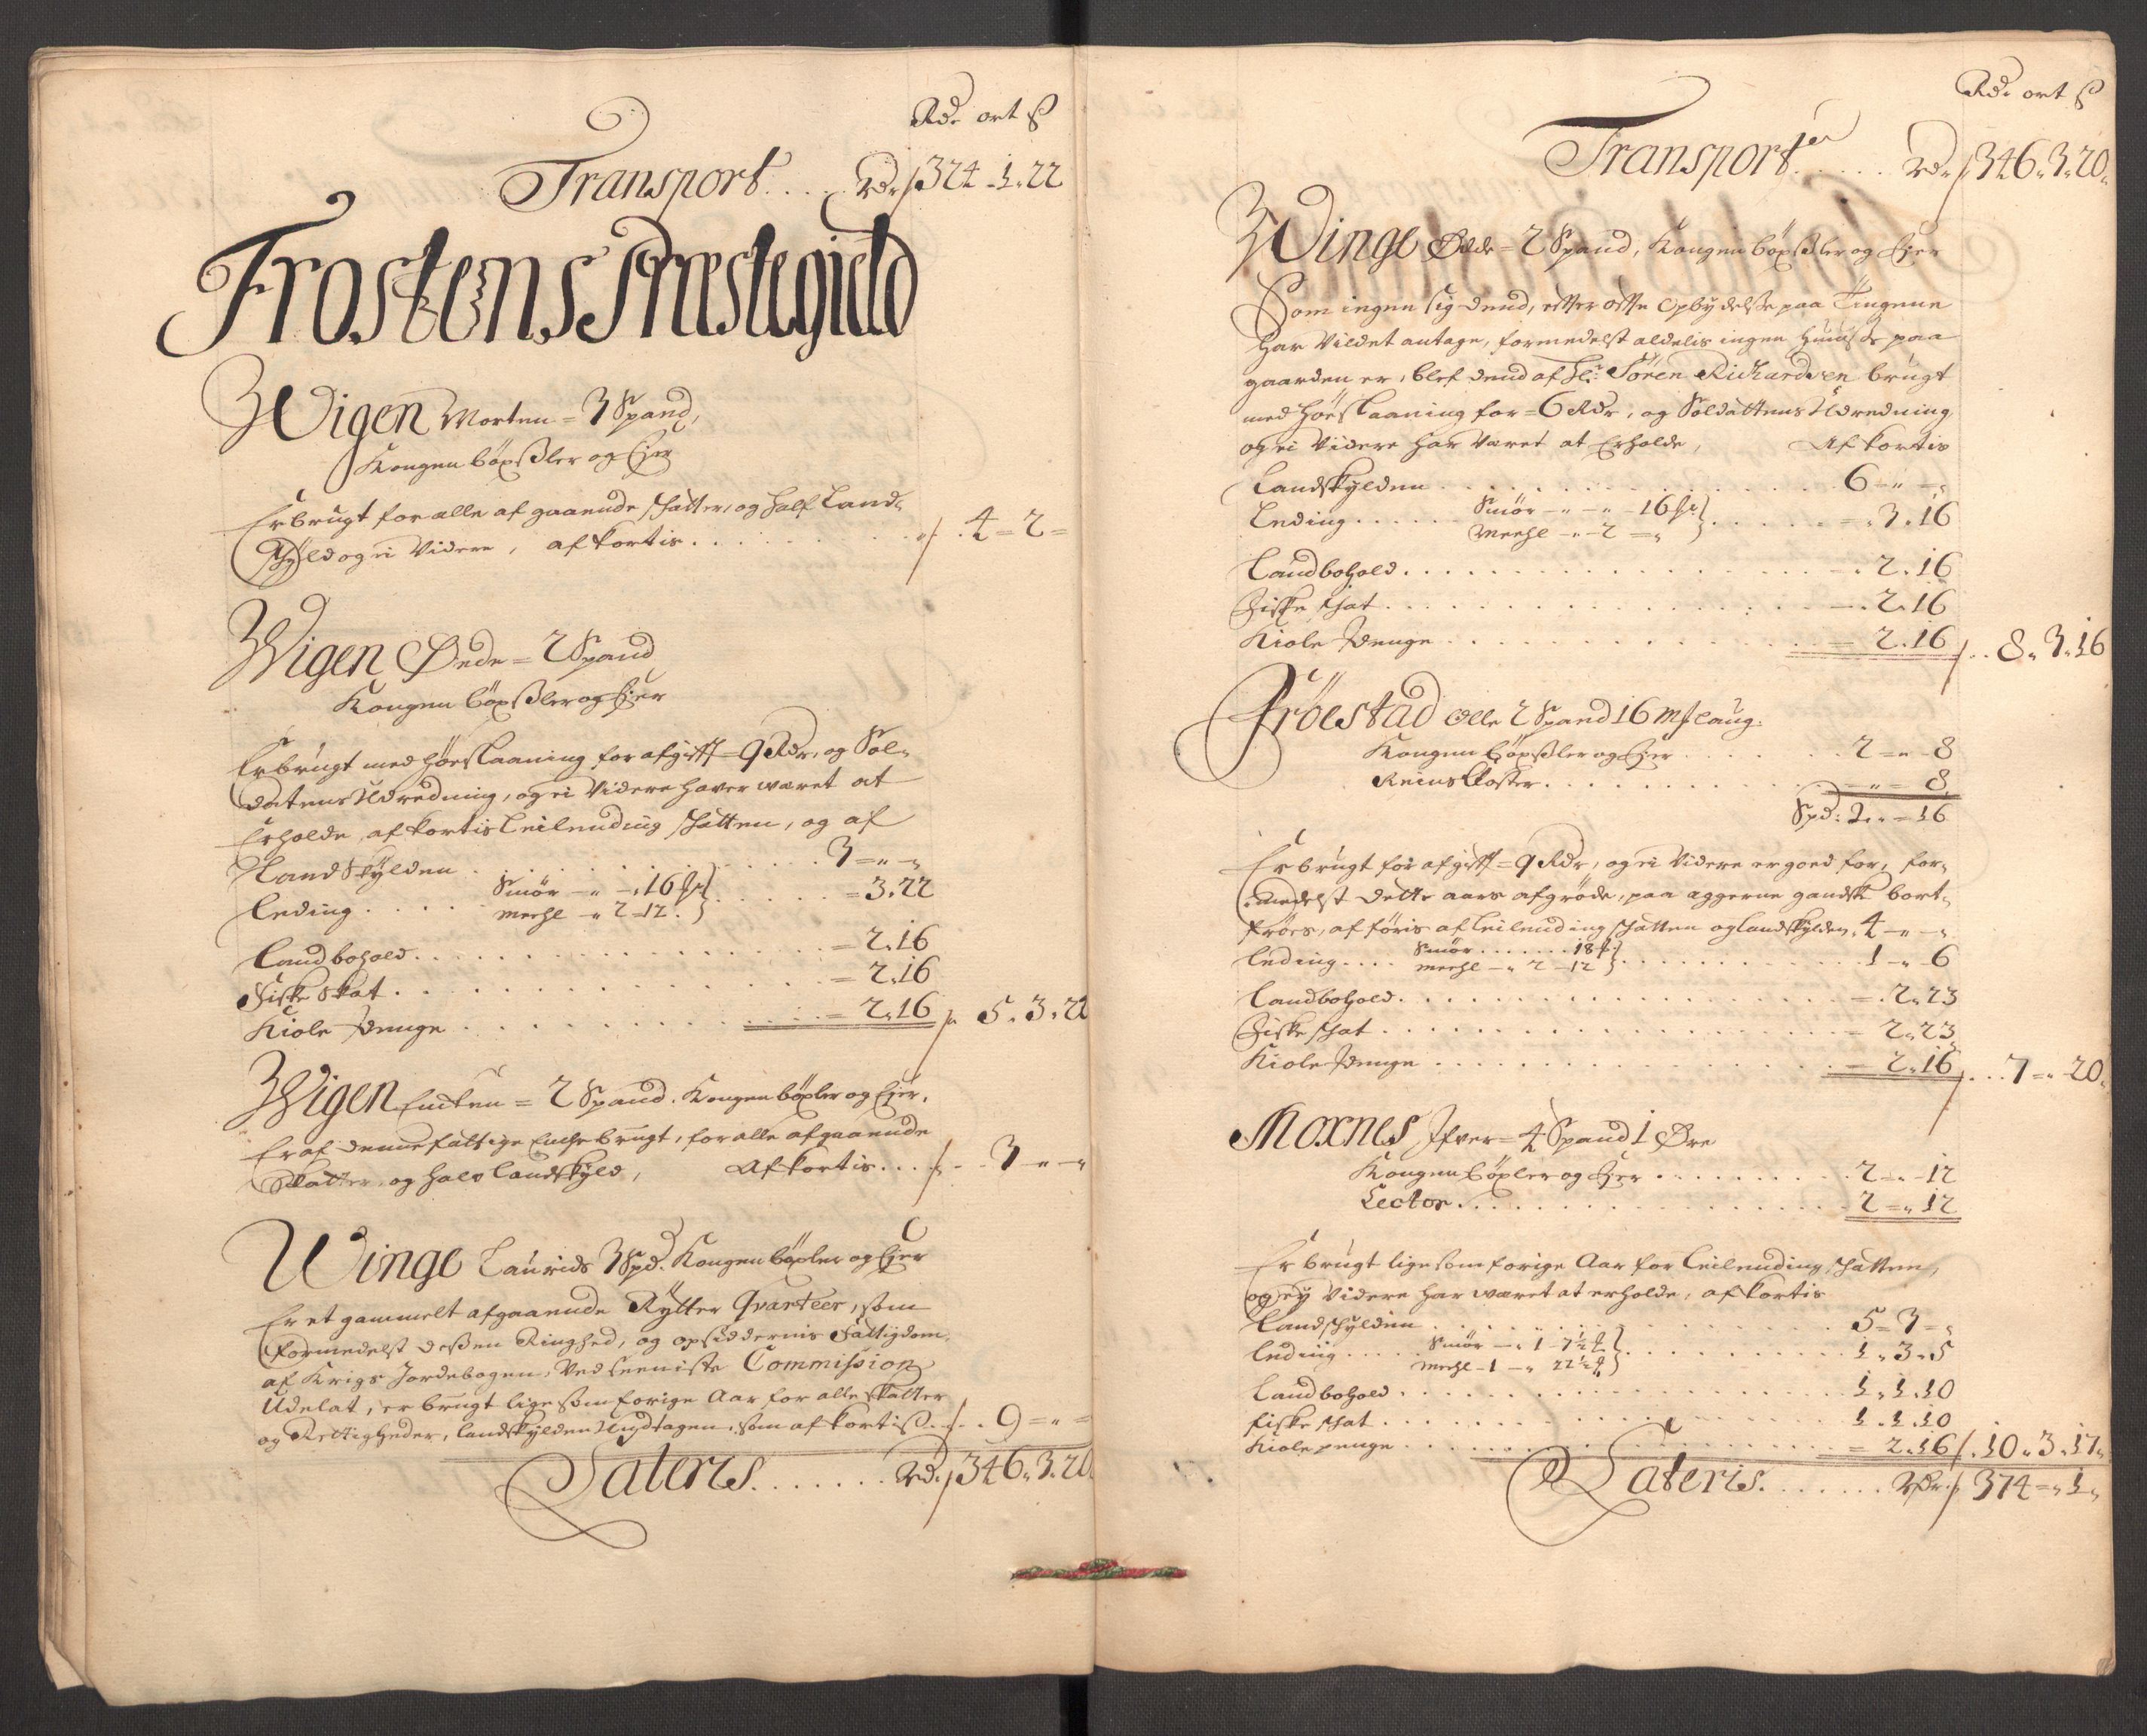 Rdr ort s
Transport..... Rdr 324-1-22
Frostens Præstegield
Wigen Morten = 3 Spand,
Kongen böxsler og Ejer
Er brugt for alle af gaaende skatter, og half Land-
skyld og ei Videre, afkortis . . . . . . . 4=2=
Wigen Øede = 2 Spand
Kongen böxsler og Ejer
Er brugt med höeslaaning for afgifft = 9 Rdr, og Sol-
datens Udredning, og ei Videre haver været at
Erholde, afkortis Leilending skatten, og af
Land Skylden . . . . . . . 3=„-„
Leding . . . . Smör -„-„16 ... =3.22
Meehl -„2-12.
Landbohold . . . . . . . =2.16
Fiske Skat . . . . . . . =2.16
Kiole Penge . . . . . . . =2.16 5.3.22
Wigen Encken = 2 Spand. Kongen böxler og Ejer,
Er af denne fattige Encke brugt, for alle afgaaende
Skatter, og halv Landskyld, Afkortis . . . 3-„-„
Winge Laurids 3 Spd. Kongen böxler og Ejer
Er et gammelt afgaaende Rytter Qvarteer, som
formedelst dessen Ringhed, og opsiddernis Fattigdom,
af Krigs Jordebogen, Ved seeniste Commission
Udelat, er brugt lige som forige Aar for alle skatter
og Rettigheder, landskylden Undtagen, som afkortis . . . 9=„=
Lateris....... Rdr 346.3.20
Rdr ort s
Transport..... Rdr 346.3.20
Winge Øde = 2 Spand, Kongen böxsler og Ejer
Som ingen sig dend, efter offte Opbydelse paa Tingene
har Vildet antage, formedelst aldelis ingen Huuse paa
gaarden er, blef dend af Hr: Sören Richardsen brugt
med höeslaaning for = 6 Rdr, og Soldattens Udredning
og ei Videre har Været at Erholde, Afkortis
Landskylden . . . . . . . 6-„-„
Leding . . . . . Smör -„-„-16 ... =.3.16
Meehl -„-2=„
Landbohold . . . . . . . -.2.16
Fiske skat . . . . . . . -.2.16
Kiole Penge . . . . . . . =2.16 8.3.16
Fröestad Olle 2 Spand 16 Mk laug:
Kongen böxsler og Ejer . . . . 2=„-8
Reins Closter . . . . . . . -„=8
Spd: 2„=16
Er brugt for afgifft = 9 Rdr, og ei Videre er goed for, for-
medelst dette aars afgröde, paa aggerne gandske bort-
fröes, af föris af Leilending skatten og landskylden. 4-„-„
Leding . . . . Smör . . . . . . 18 ... 1-„6
Meehl -„2-12
Landbohold . . . . . . . =.2.23
Fiske skat . . . . . . . =2.23
Kiole Penge . . . . . . . =2.16 7=„20
Moxnes Ifver = 4 Spand 1 Øre
Kongen böxler og Ejer . . . . . . . 2=„-12
Lector . . . . . . . 2=„12
Er brugt lige som forige Aar for Leilending skatten,
og ey Videre har været at erholde, afkortis
Landskylden . . . . . . . 5-3-„
Leding . . . . Smör -„1-7½ ... 1.3.5
Meehl-1-„22½
Landbohold . . . . . . . 1.1.10
fiske skat . . . . . . . 1.1.10
Kiole penge . . . . . . . =2.16 10.3.17
Lateris....... Rdr 374=„1„